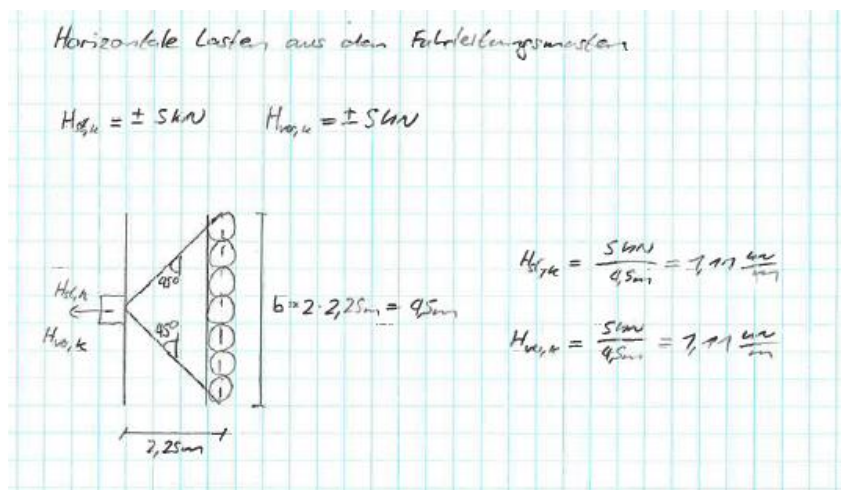 Horizontale Lasten aus den Fahrleitungsmasten
H_st,k = ± 5 kN H_ver,k = ± 5 kN
45°
45°
H_st,k
H_ver,k
b = 2 · 2,25m = 4,5m
2,25m
H_st,k = 5 kN / 4,5m = 1,11 kN/m
H_ver,k = 5 kN / 4,5m = 1,11 kN/m